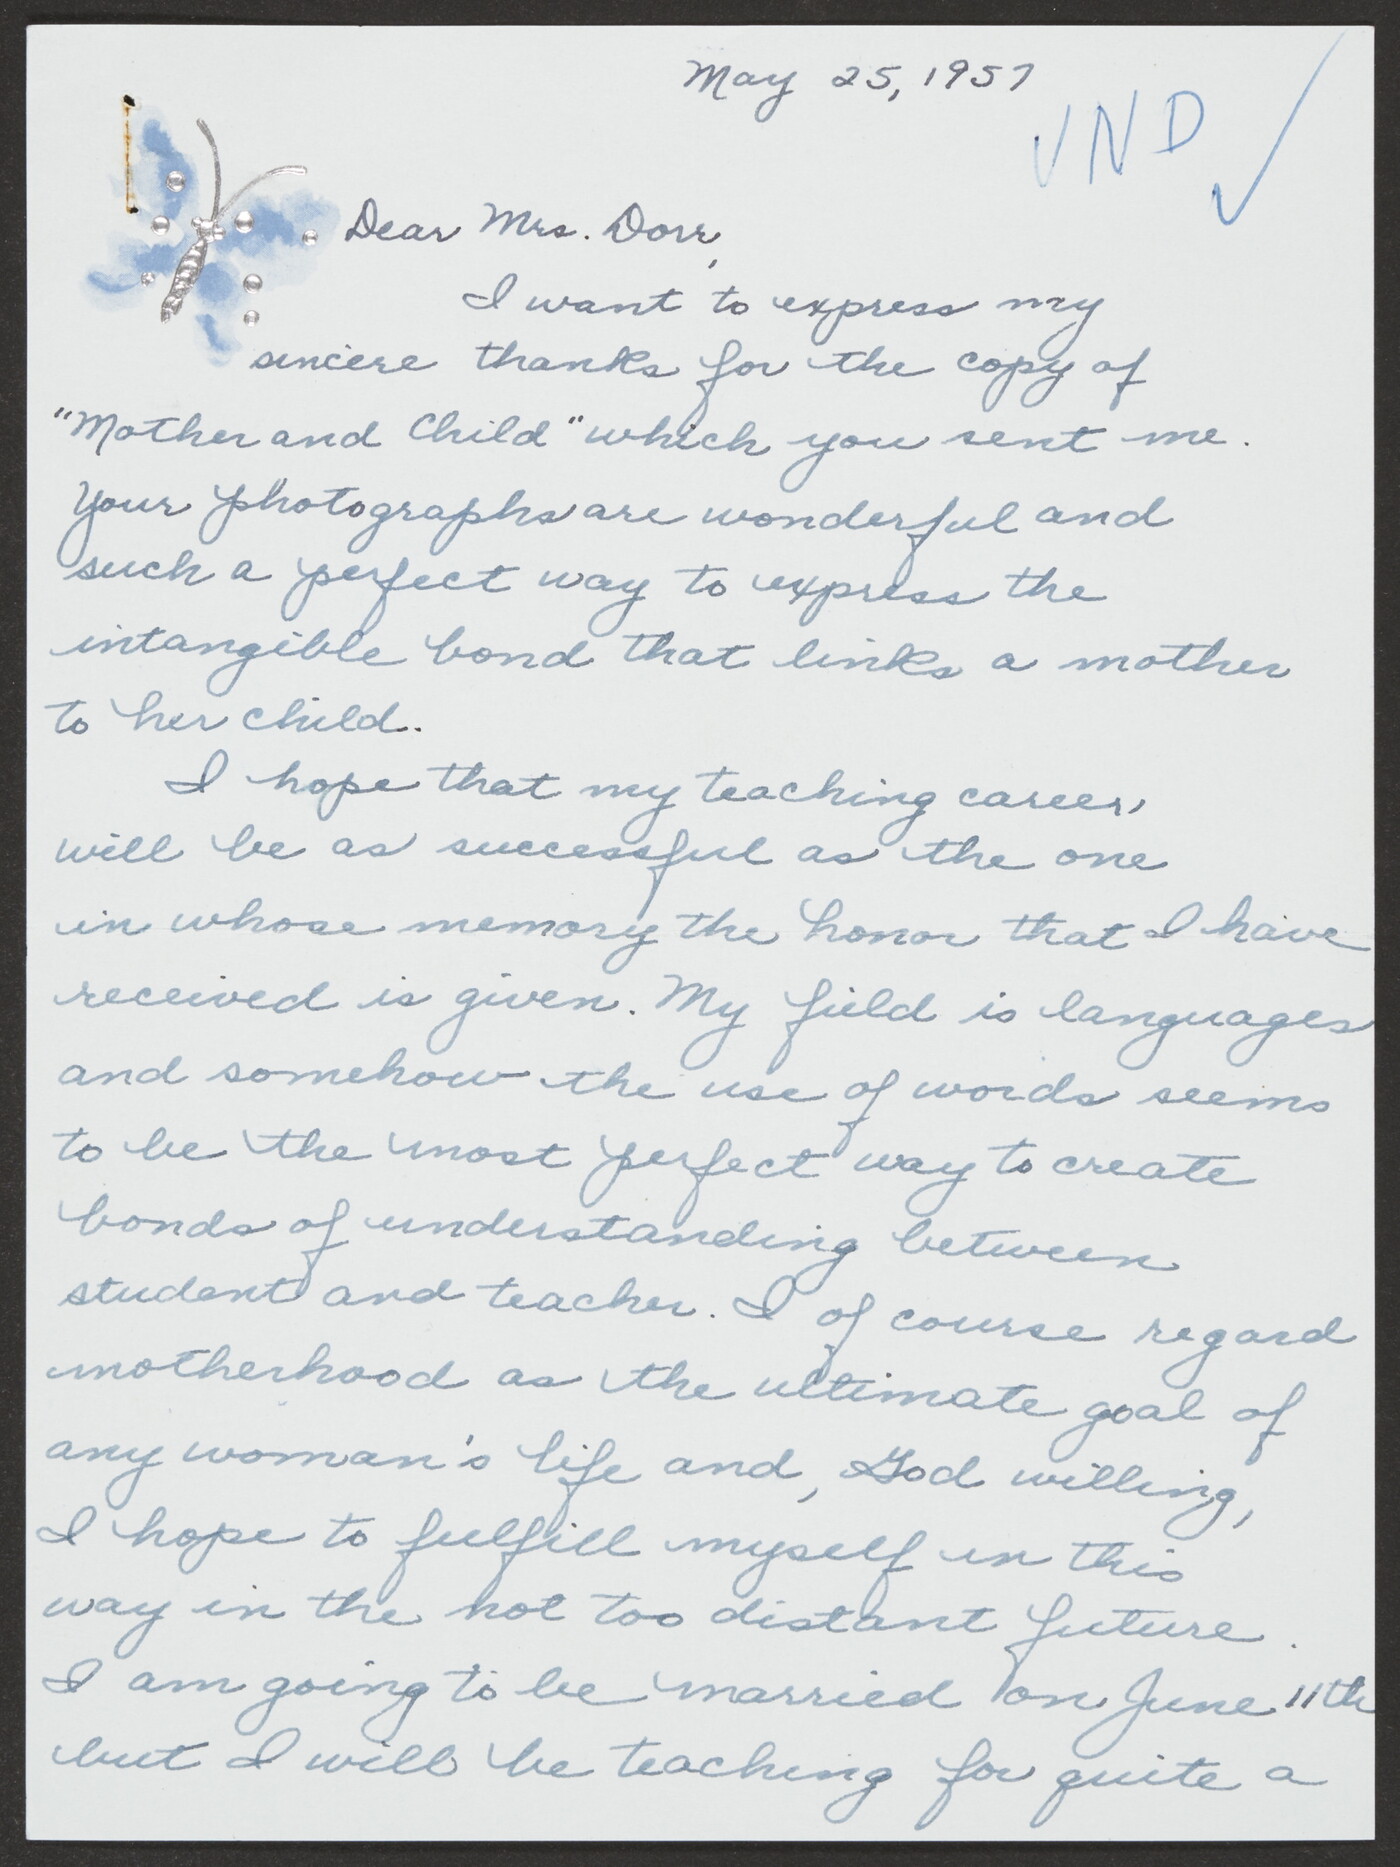 May 25, 1957
VND
Dear Mrs. Dorr,
I want to express my
sincere thanks for the copy of
"Mother and Child" which you sent me.
Your photographs are wonderful and
such a perfect way to express the
intangible bond that links a mother
to her child.
I hope that my teaching career,
will be as successful as the one
in whose memory the honor that I have
received is given. My field is languages
and somehow the use of words seems
to be the most perfect way to create
bonds of understanding between
student and teacher. I of course regard
motherhood as the ultimate goal of
any woman's life and, God willing,
I hope to fulfill myself in this
way in the not too distant future.
I am going to be married on June 11th
but I will be teaching for quite a